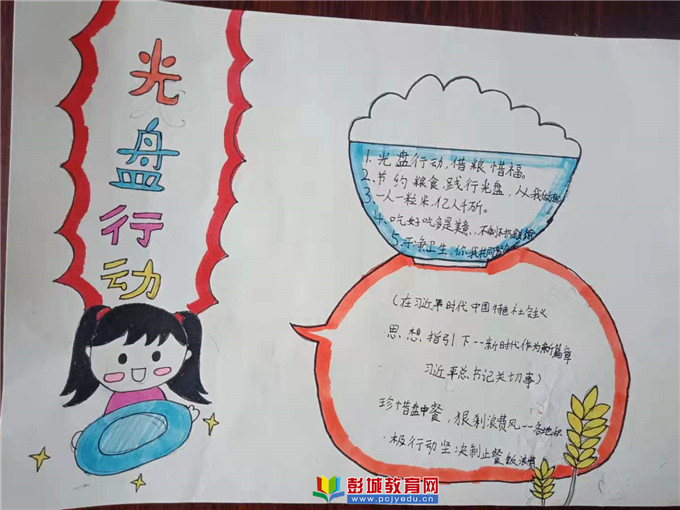 光盘行动
1. 光盘行动,惜粮惜福。
2. 节约粮食,践行光盘,从我
3. 一人一粒米,亿人千斤。
4. 吃好吃多是
5. 干净卫生,你我共同
(在习近平时代中国特色社会主义
思想指引下--新时代作为新篇章
习近平总书记关切事)
珍惜盘中餐,狠刹浪费风--各地积
极行动坚决制止餐饮浪费
彭城教育网
www.pcjyedu.cn